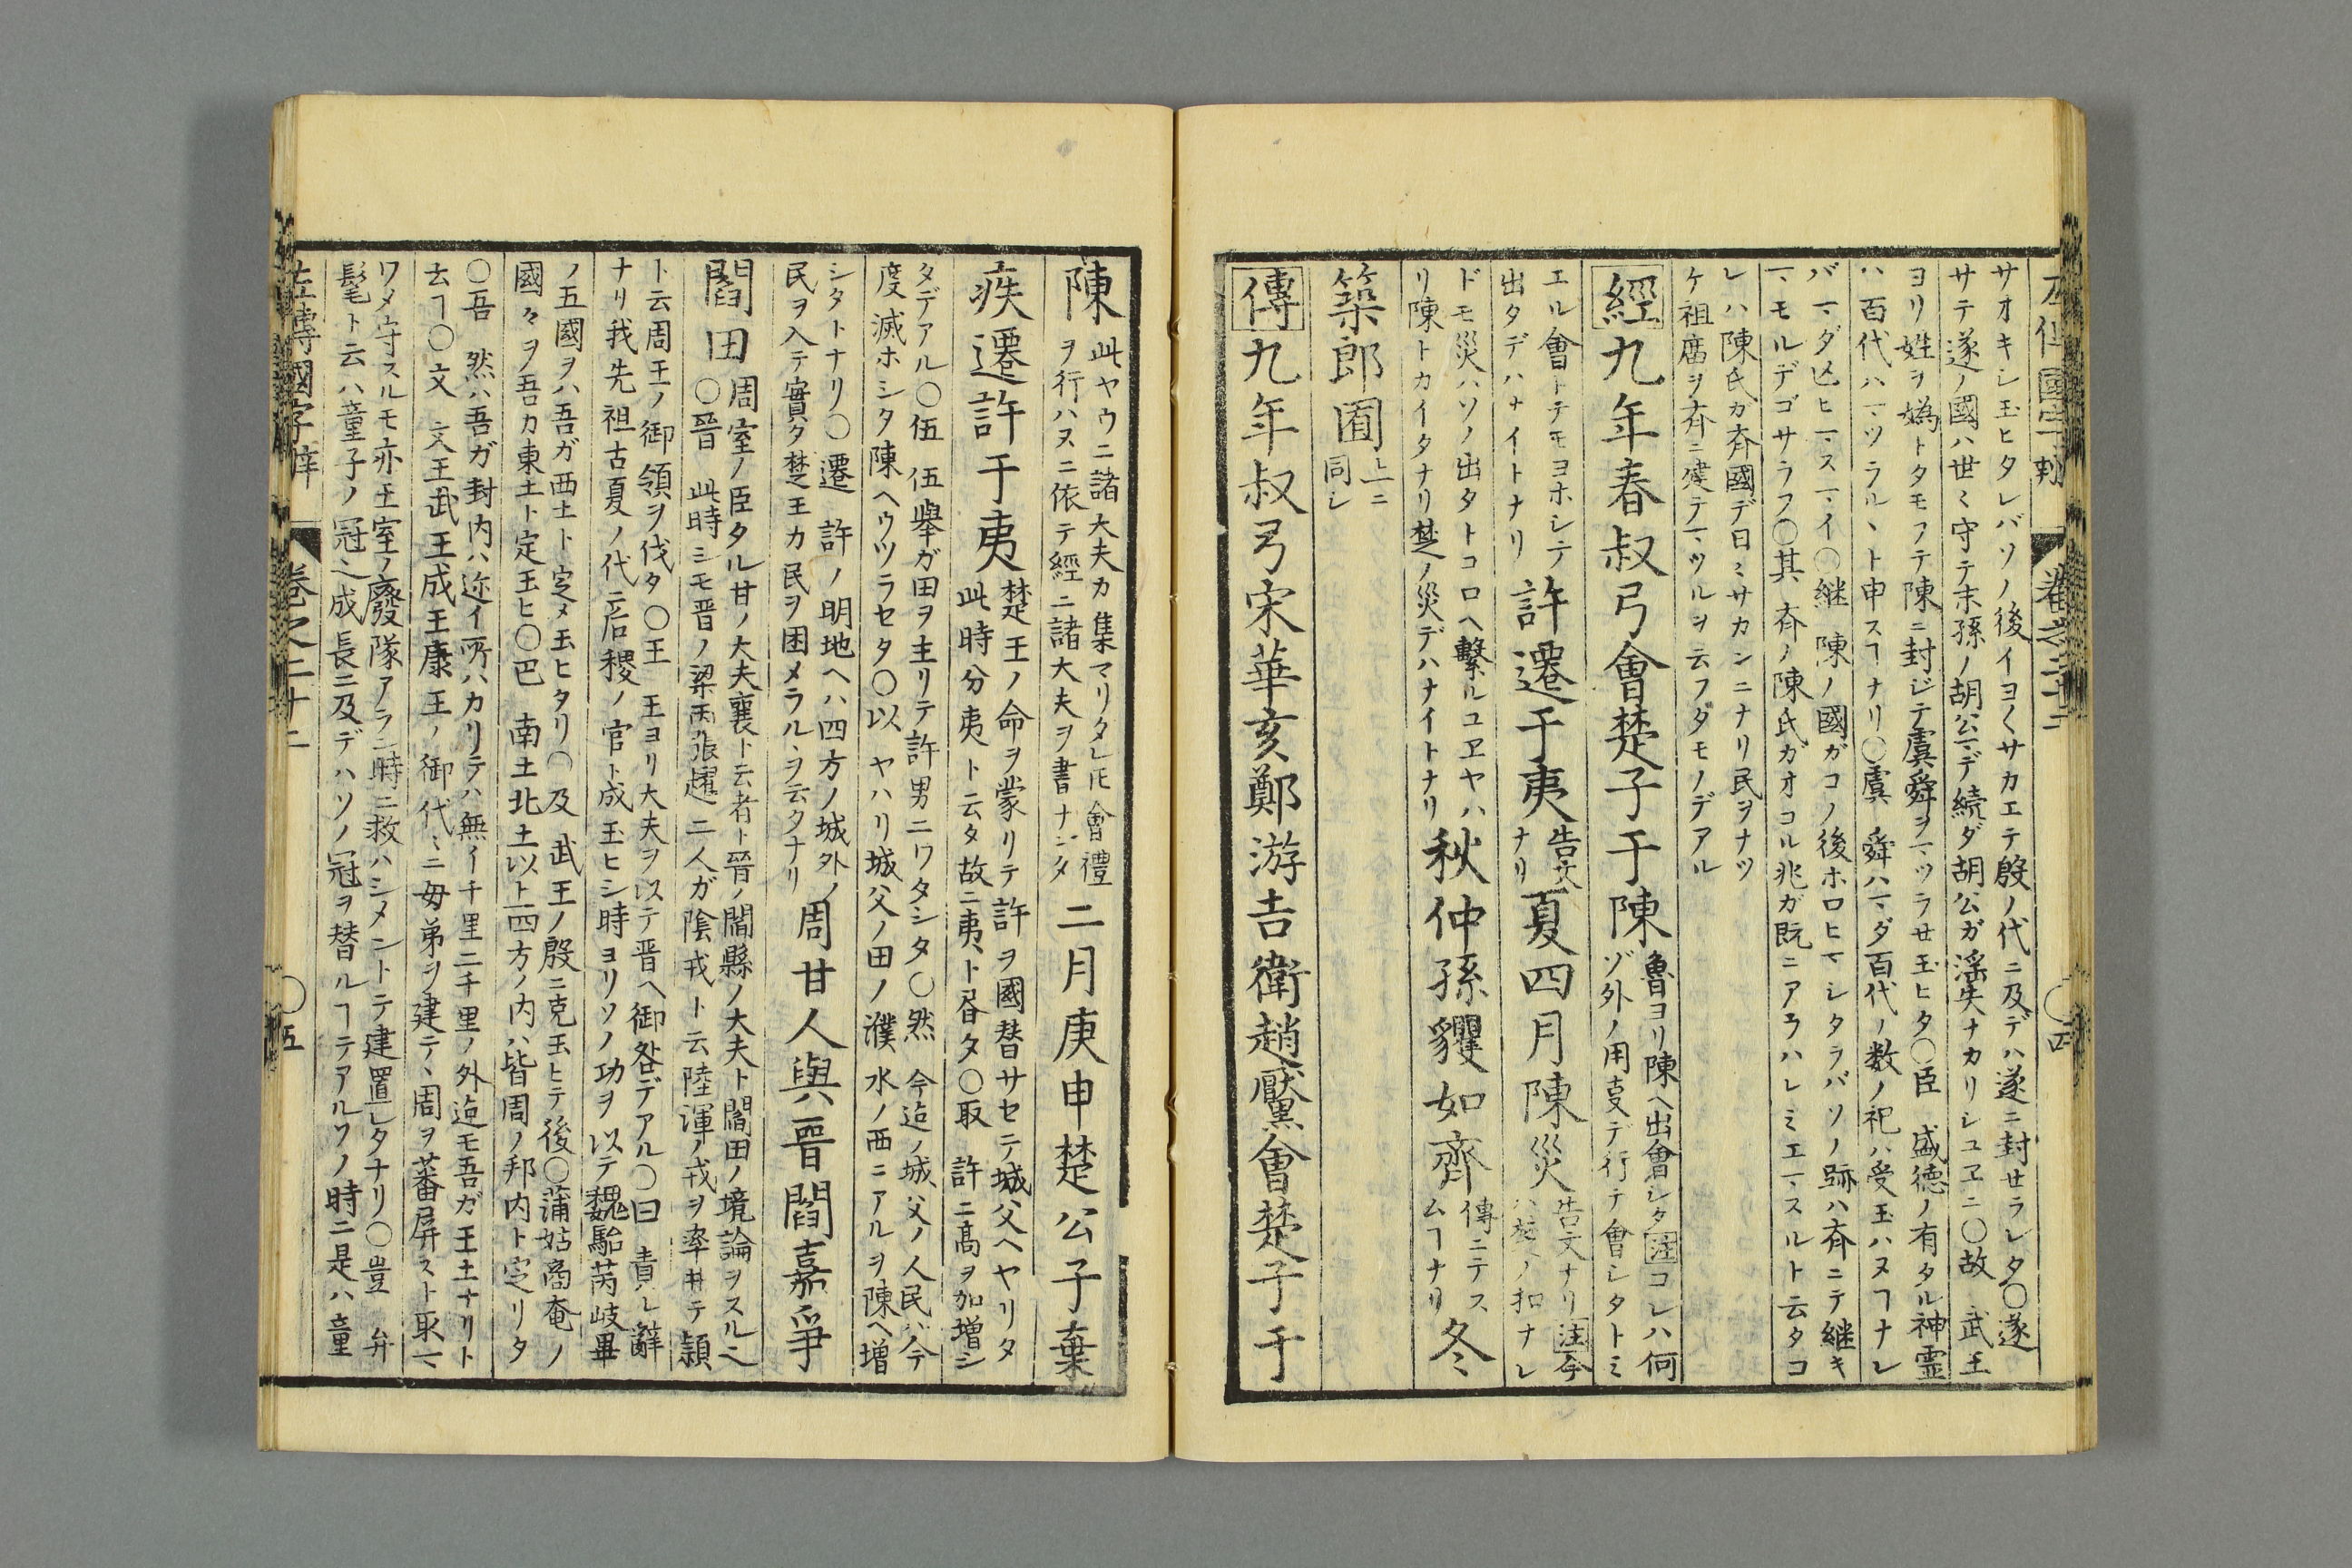 左傳國字辨 卷之二十二 〇四
サオキシ玉ヒタレバソノ後イヨ〱サカエテ殷ノ代ニ及デハ遂ニ封セラレタ〇遂
サテ遂ノ國ハ世〻守テ末孫ノ胡公マデ続ダ胡公ガ淫失ナカリシユヱニ〇故 武王
ヨリ姓ヲ嬀トタモフテ陳ニ封ジテ虞舜ヲマツラせ玉ヒタ〇臣 盛德ノ有タル神霊
ハ百代ハマツラルヽト申スヿナリ〇虞 舜ハマダ百代ノ数ノ祀ハ受玉ハヌヿナレ
バマダ亡ヒマスマイ〇継 陳ノ國ガコノ後ホロヒマシタラバソノ跡ハ斉ニテ継キ
マモルデゴサラフ〇其 斉ノ陳氏ガオコル兆ガ既ニアラハレミエマスルト云タコ
レハ陳氏ガ斉國デ日〻サカンニナリ民ヲナツ
ケ祖廟ヲ斉ニ建テマツルヲ云フダモノデアル
經九年春叔弓會楚子于陳
魯ヨリ陳ヘ出會シタ注コレハ何
ゾ外ノ用支デ行テ會シタトミ
エル會トテモヨホシテ
出タデハナイトナリ
許遷于夷
告文
ナリ
夏四月陳災
告文ナリ注今
ハ楚ノ和ナレ
ドモ災ハソノ出タトコロヘ繫ルユヱヤハ
リ陳トカイタナリ楚ノ災デハナイトナリ
秋仲孫貜如齊
傳ニテス
ムヿナリ
冬
築郎囿
上ニ
同シ
傳九年叔弓宋華亥鄭游吉衛趙黶會楚子于
陳
此ヤウニ諸大夫カ集マリタレ𪜈會禮
ヲ行ハヌニ依テ經ニ諸大夫ヲ書ナンタ
二月庚申楚公子棄
疾遷許于夷
楚王ノ命ヲ蒙リテ許ヲ國替サセテ城父ヘヤリタ
此時分夷ト云タ故ニ夷ト昏タ〇取 許ニ高ヲ加増シ
タデアル〇伍 伍擧ガ田ヲ主リテ許男ニワタシタ〇然 今迠ノ城父ノ人民ハ今
度滅ホシタ陳ヘウツラセタ〇以 ヤハリ城父ノ田ノ濮水ノ西ニアルヲ陳ヘ増
シタトナリ〇遷 許ノ明地ヘハ四方ノ城外ノ
民ヲ入テ實タ楚王カ民ヲ困メラルヽヲ云タナリ
周甘人與晋閻嘉爭
閻田
周室ノ臣タル甘ノ大夫襄ト云者ト晉ノ閻縣ノ大夫ト閻田ノ境論ヲスル也
〇晉 此時シモ晋ノ梁丙張趯二人ガ陰戎ト云陸渾ノ戎ヲ率井テ頴
ト云周王ノ御領ヲ伐タ〇王 王ヨリ大夫ヲ以テ晋ヘ御咎デアル〇曰 責レ辭
ナリ我先祖古夏ノ代ニ后稷ノ官ト成玉ヒシ時ヨリソノ功ヲ以テ魏駘芮岐畢
ノ五國ヲハ吾ガ西土ト定メ玉ヒタリ〇及 武王ノ殷ニ克玉ヒテ後〇蒲姑商奄ノ
國々ヲ吾カ東土ト定玉ヒ〇巴 南土北土以上四方ノ内ハ皆周ノ邦内ト定リタ
〇吾 然ハ吾ガ封内ハ迩イ所ハカリテハ無イ千里二千里ノ外迠モ吾ガ王土ナリト
云ヿ〇文 文王武王成王康王ノ御代〻ニ毋弟ヲ建テヽ周ヲ蕃屏スト取マ
ワメ守スルモ亦王室ノ廢隊アラン時ニ救ハシメントテ建置レタナリ〇豈 弁
髦ト云ハ童子ノ冠也成長ニ及デハソノ冠ヲ替ルヿテアルソノ時ニ是ハ童
左傳國字辨 卷之二十二 〇五